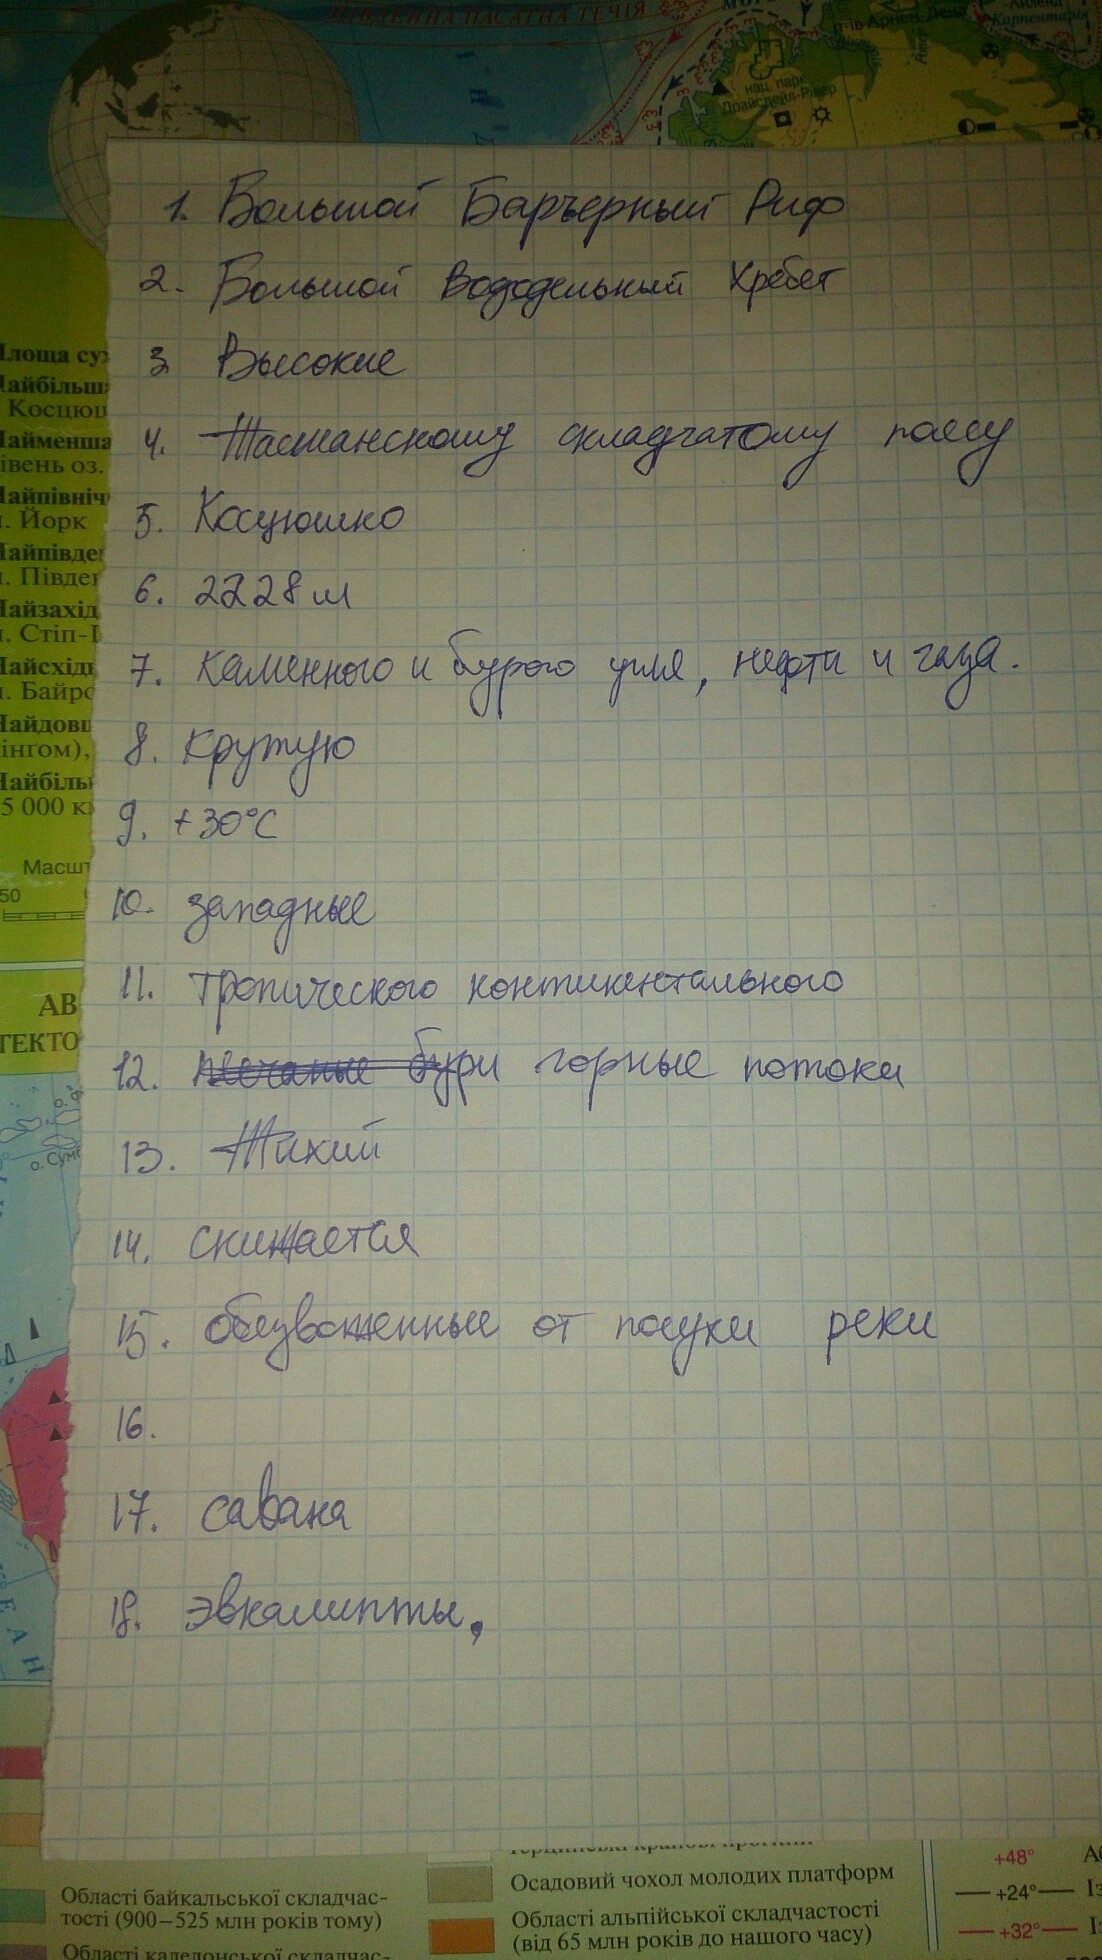 ПІВДЕННА ПАСАТНА ТЕЧІЯ
п-ів Арнем-Ленд
Карпентарія
нац. парк
Драйсдейл-Рівер
1. Большой Барьерный Риф
2. Большой Вододельный Хребет
3 Высокие
4. Тасманскому складчатому поясу
5. Косцюшко
6. 2228 м
7. каменного и бурого угля, нефти и газа.
8. крутую
9. +30°C
10. западные
11. тропического континентального
12. песчаные бури горные потоки
13. Тихий
14. снижается
15. от реки
16.
17. савана
18. эвкалипты,
Площа су
Найбільш
Косцюш
Найменша
рівень оз.
Найпівніч
м. Йорк
Найпівде
м. Півден
Найзахід
м. Стіп-П
Найсхідн
м. Байро
Найдовш
інгом),
Найбіль
5 000 к
Масшт
50
АВ
ТЕКТО
о. Сумб
Е А Н
Області байкальської складчас-
тості (900–525 млн років тому)
Області каледонської складчас-
Осадовий чохол молодих платформ
Області альпійської складчастості
(від 65 млн років до нашого часу)
+48°
+24°
+32°